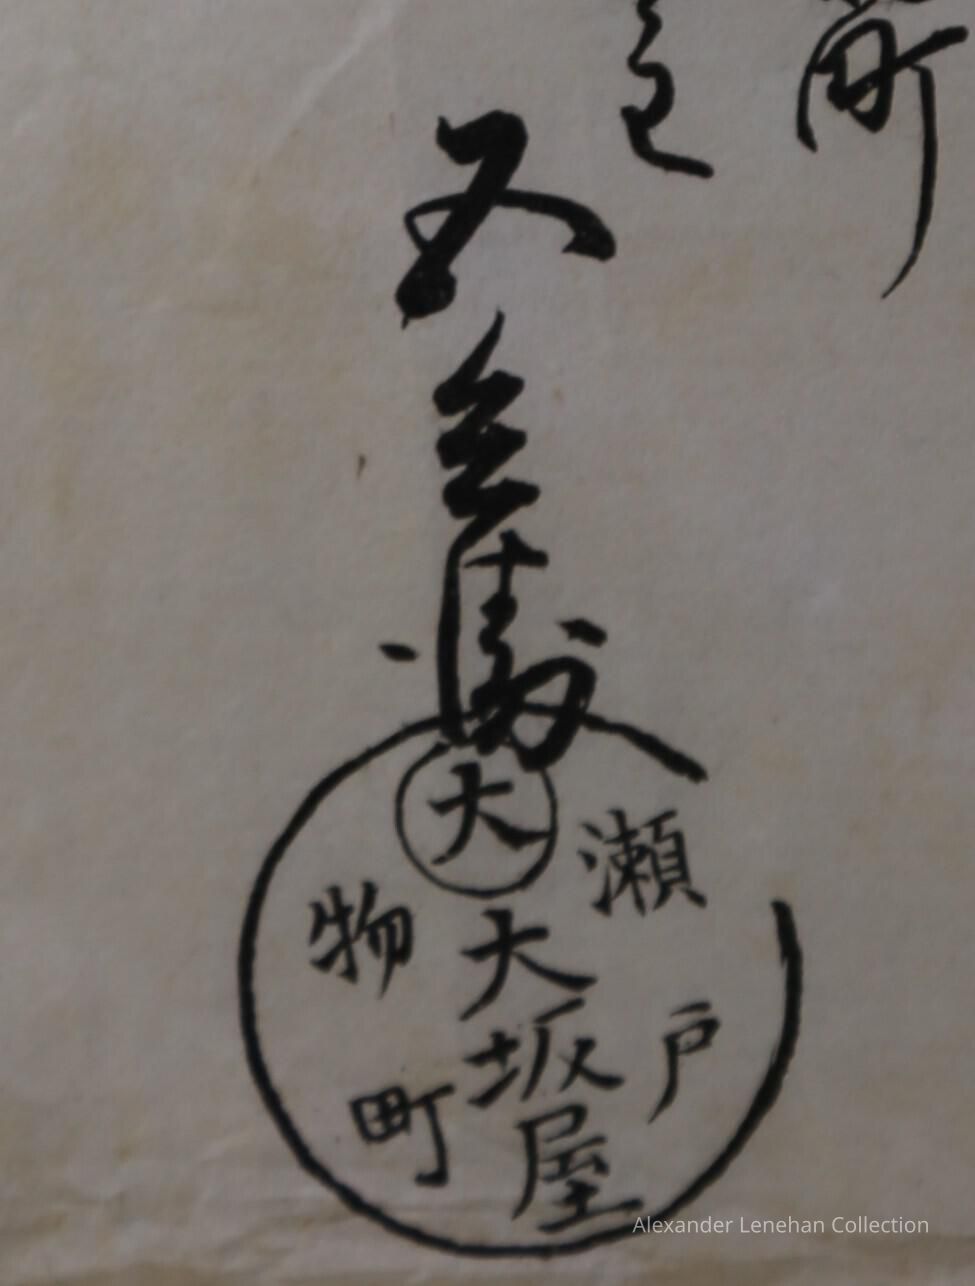 町
五兵衛
大
瀬戸
大坂屋
物町
Alexander Lenehan Collection